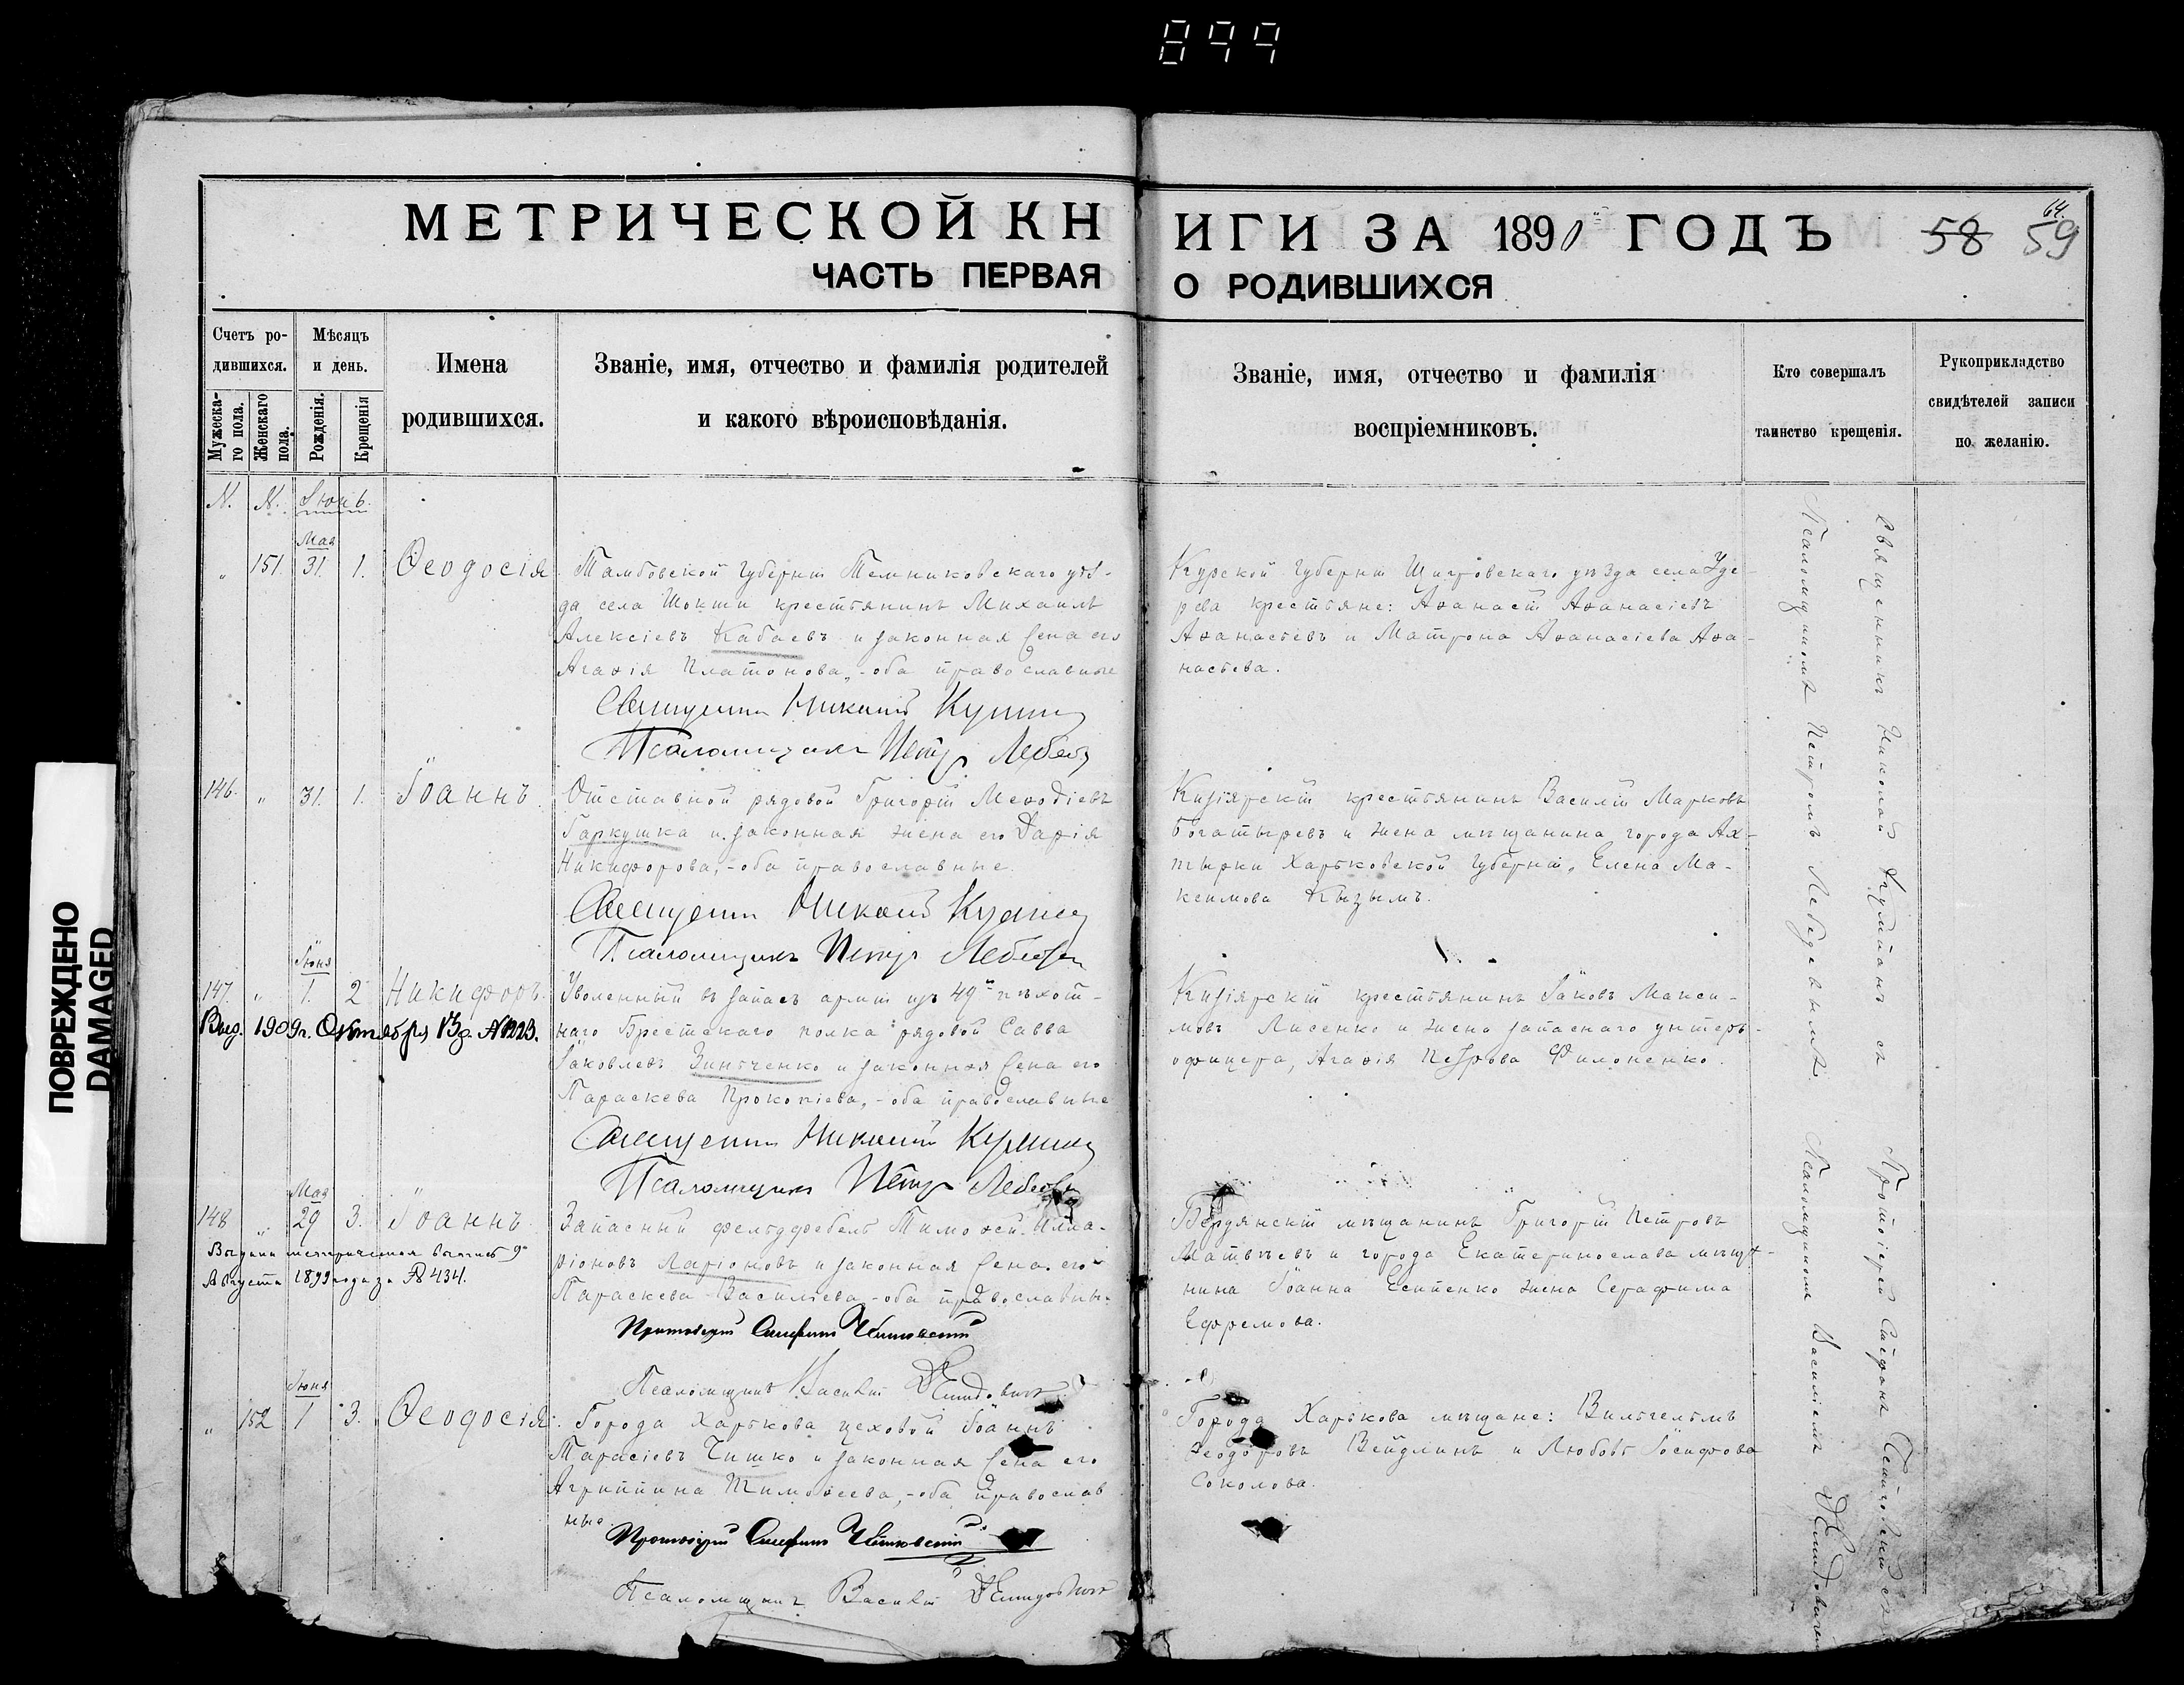 899
МЕТРИЧЕСКОЙ КНИГИ ЗА 1890й ГОДЪ
58 59
64.
ЧАСТЬ ПЕРВАЯ О РОДИВШИХСЯ
Счетъ ро-
дившихся.
Мужеска-
го пола.
Женскаго
пола.
Мѣсяцъ
и день.
Рожденія.
Крещенія
Имена
родившихся.
Званіе, имя, отчество и фамилія родителей
и какого вѣроисповѣданія.
Званіе, имя, отчество и фамилія
воспріемниковъ.
Кто совершалъ
таинство крещенія.
Рукоприкладство
свидѣтелей записи
по желанію.
N. N. Іюнь.
Мая
" 151. 31. 1. Ѳеодосія
Тамбовской губерніи Темниковскаго уѣз-
да села Шокши крестьянинъ Михаилъ
Алексіевъ Кабаевъ и законная жена его
Агаѳія Платонова, - оба православные
Священникъ Николай
Псаломщикъ Петръ Лебедевъ
Курской губерніи Щигровскаго уѣзда села Уде-
рева крестьяне: Аѳанасій Аѳанасіевъ
Аѳанасьевъ и Матрона Аѳанасіева Аѳа-
насьева.
146. " 31. 1. Іоаннъ.
Отставной рядовой Григорій Меѳодіевъ
Гаркушка и законная жена его Дарія
Никифорова, - оба православные
Священникъ Николай
Псаломщикъ Петръ Лебедевъ
Кизіярскій крестьянинъ Василій Марковъ
Богатыревъ и жена мѣщанина города Ах-
тырки Харьковской губерніи, Елена Ма-
ксимова Кызымъ.
Іюня
147. " 1. 2 Никифоръ.
Выд. 1909г. Октября 13д. №1223.
Уволенный въ запасъ арміи изъ 49й пѣхот-
наго Брестскаго полка рядовой Савва
Іаковлевъ Зинченко и законная жена его
Параскева Прокопіева, - оба православные
Священникъ Николай
Псаломщикъ Петръ Лебедевъ
Кизіярскій крестьянинъ Іаковъ Макси-
мовъ Лисенко и жена запаснаго унтеръ-
офицера, Агаѳія Петрова Филоненко.
Мая
148 " 29 3. Іоаннъ.
Выдана метрическая выпись 9го
Августа 1899 года за № 434.
Запасный фельдфебель Тимоѳей Илла-
ріоновъ Ларіоновъ и законная жена его
Параскева Василіева, - оба православны.
Протоіерей Стефанъ
Псаломщикъ Василій Демидовичъ
Бердянскій мѣщанинъ Григорій Петровъ
Матвѣевъ и города Екатеринослава мѣща-
нина Іоанна Есипенко жена Серафима
Ефремова.
Іюня
" 152 1 3. Ѳеодосія.
Города Харькова цеховой Іоаннъ
Тарасіевъ Чишко и законная жена его
Агриппина Тимоѳеева, - оба православ
ные.
Протоіерей Стефанъ
Псаломщикъ Василій Демидовичъ
Города Харькова мѣщане: Вильгельмъ
Ѳеодоровъ Вейдлинъ и Любовь Іосифова
Соколова.
Священникъ Николай съ
Псаломщикомъ Петромъ Лебедевымъ.
Протоіерей Стефанъ съ
Псаломщикомъ Василіемъ Демидовичемъ
ПОВРЕЖДЕНО
DAMAGED